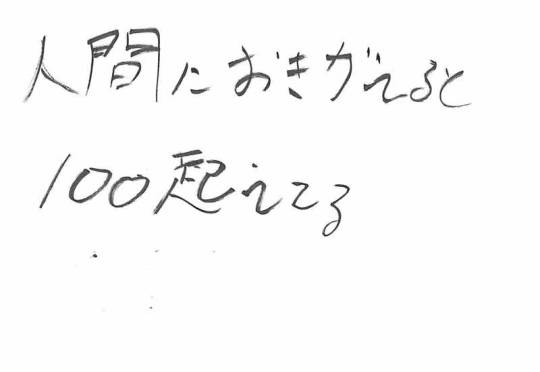 人間におきがえると
100起えてる